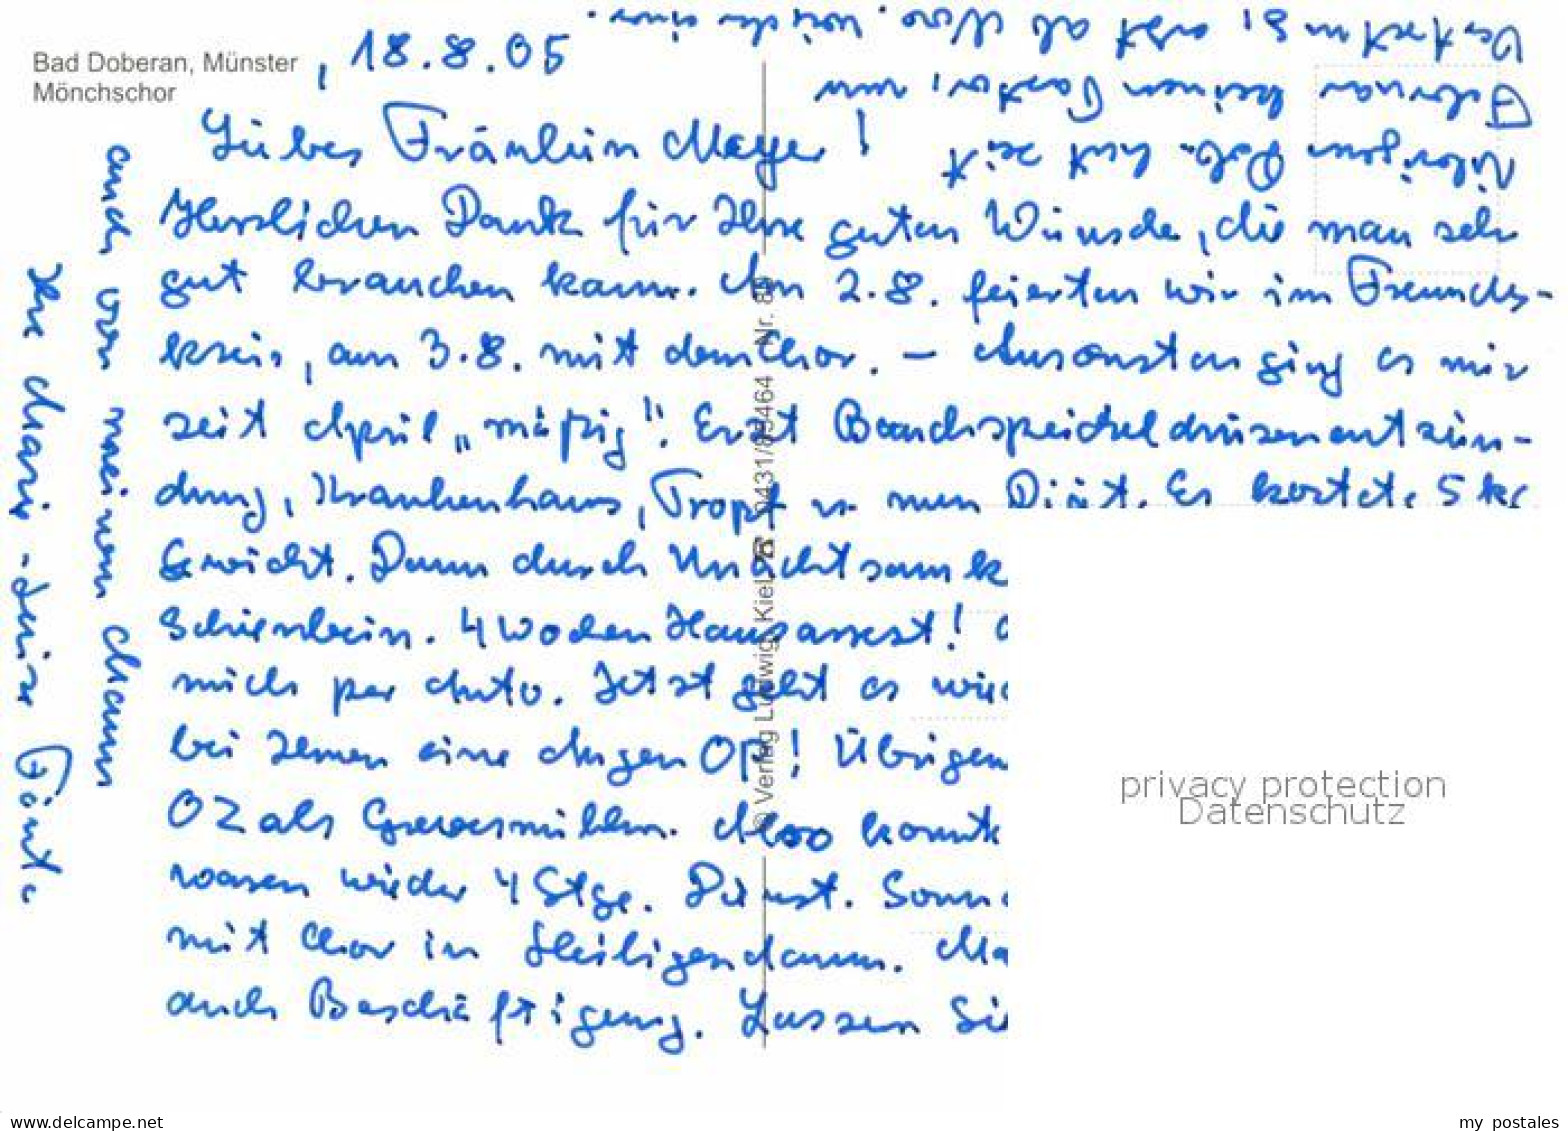 Bad Doberan, Münster
Mönchschor
, 18.8.05
Liebes Fräulein Meyer!
Herzlichen Dank für Ihre guten Wünsche, die man sehr
gut brauchen kann. Am 2.8. feierten wir im Freundes-
kreis, am 3.8. mit dem Chor. – Ansonsten ging es mir
seit April „mäßig“. Erst Bauchspeicheldrüsenentzün-
dung, Krankenhaus, Tropf u. nun Diät. Es kostete 5 kg
Gewicht. Dann durch Unachtsamk
Schienbein. 4 Wochen Hausarrest!
mich per Auto. Jetzt geht es wie
bei Ihnen eine Augen OP! Übrigen
OZ als Grevesmühlen. Also konnte
waren wieder 4 Stge. Dienst. Sonn
mit Chor in Heiligendamm. Ma
auch Beschäftigung. Lassen Sie
auch von meinem Mann
Ihre Marie-Luise
seit
Februar keinen Pastor, nun
© Verlag Ludwig, Kiel ☎ 0431/85464 Nr. 8
privacy protection
Datenschutz
delcampe.net
my_postales